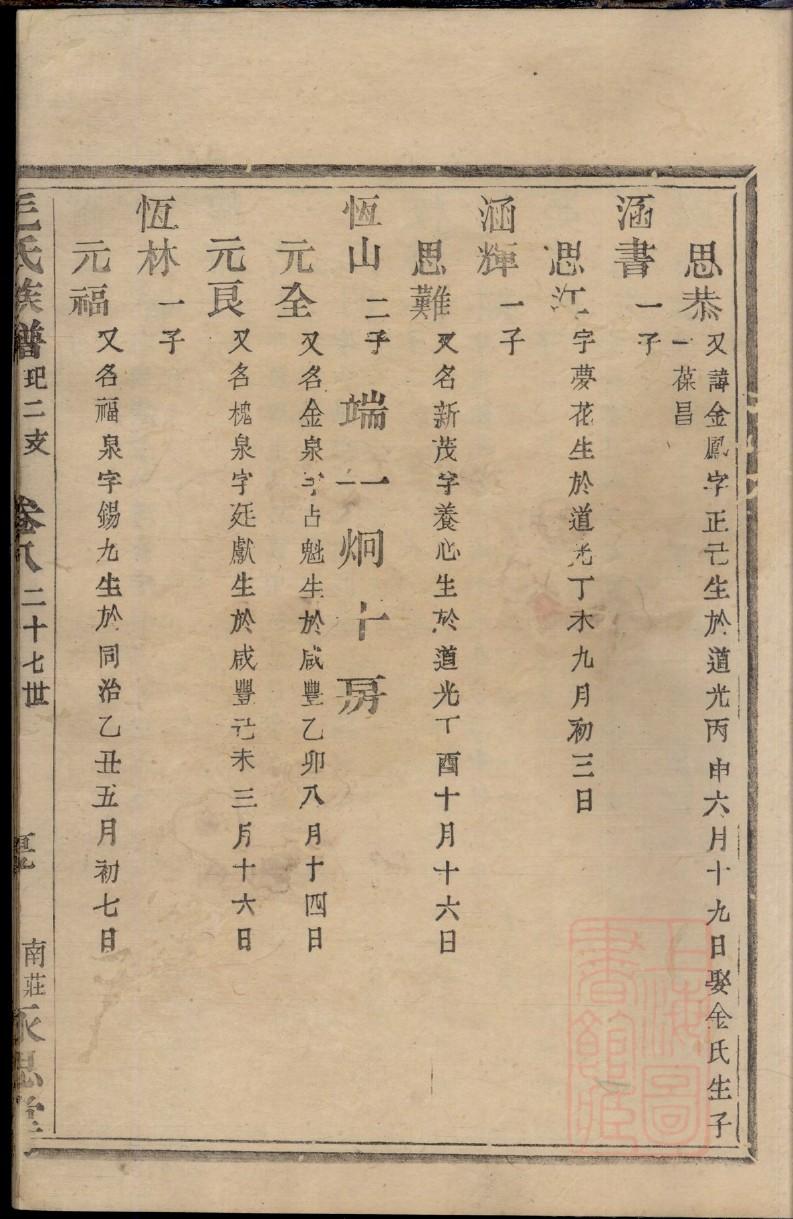 思恭又諱金鳳字正己生於道光丙申六月十九日娶金氏生子
一葆昌
涵書一子
思江字夢花生於道光丁未九月初三日
涵輝一子
思難又名新茂字養心生於道光丁酉十月十六日
恆山二子 端一炯十房
元全又名金泉字占魁生於咸豐乙卯八月十四日
元良又名槐泉字廷獻生於咸豐己未三月十六日
恆林一子
元福又名福泉字錫九生於同治乙丑五月初七日
毛氏族譜 玘二支 卷八 二十七世 南莊永思堂
上海圖書館藏